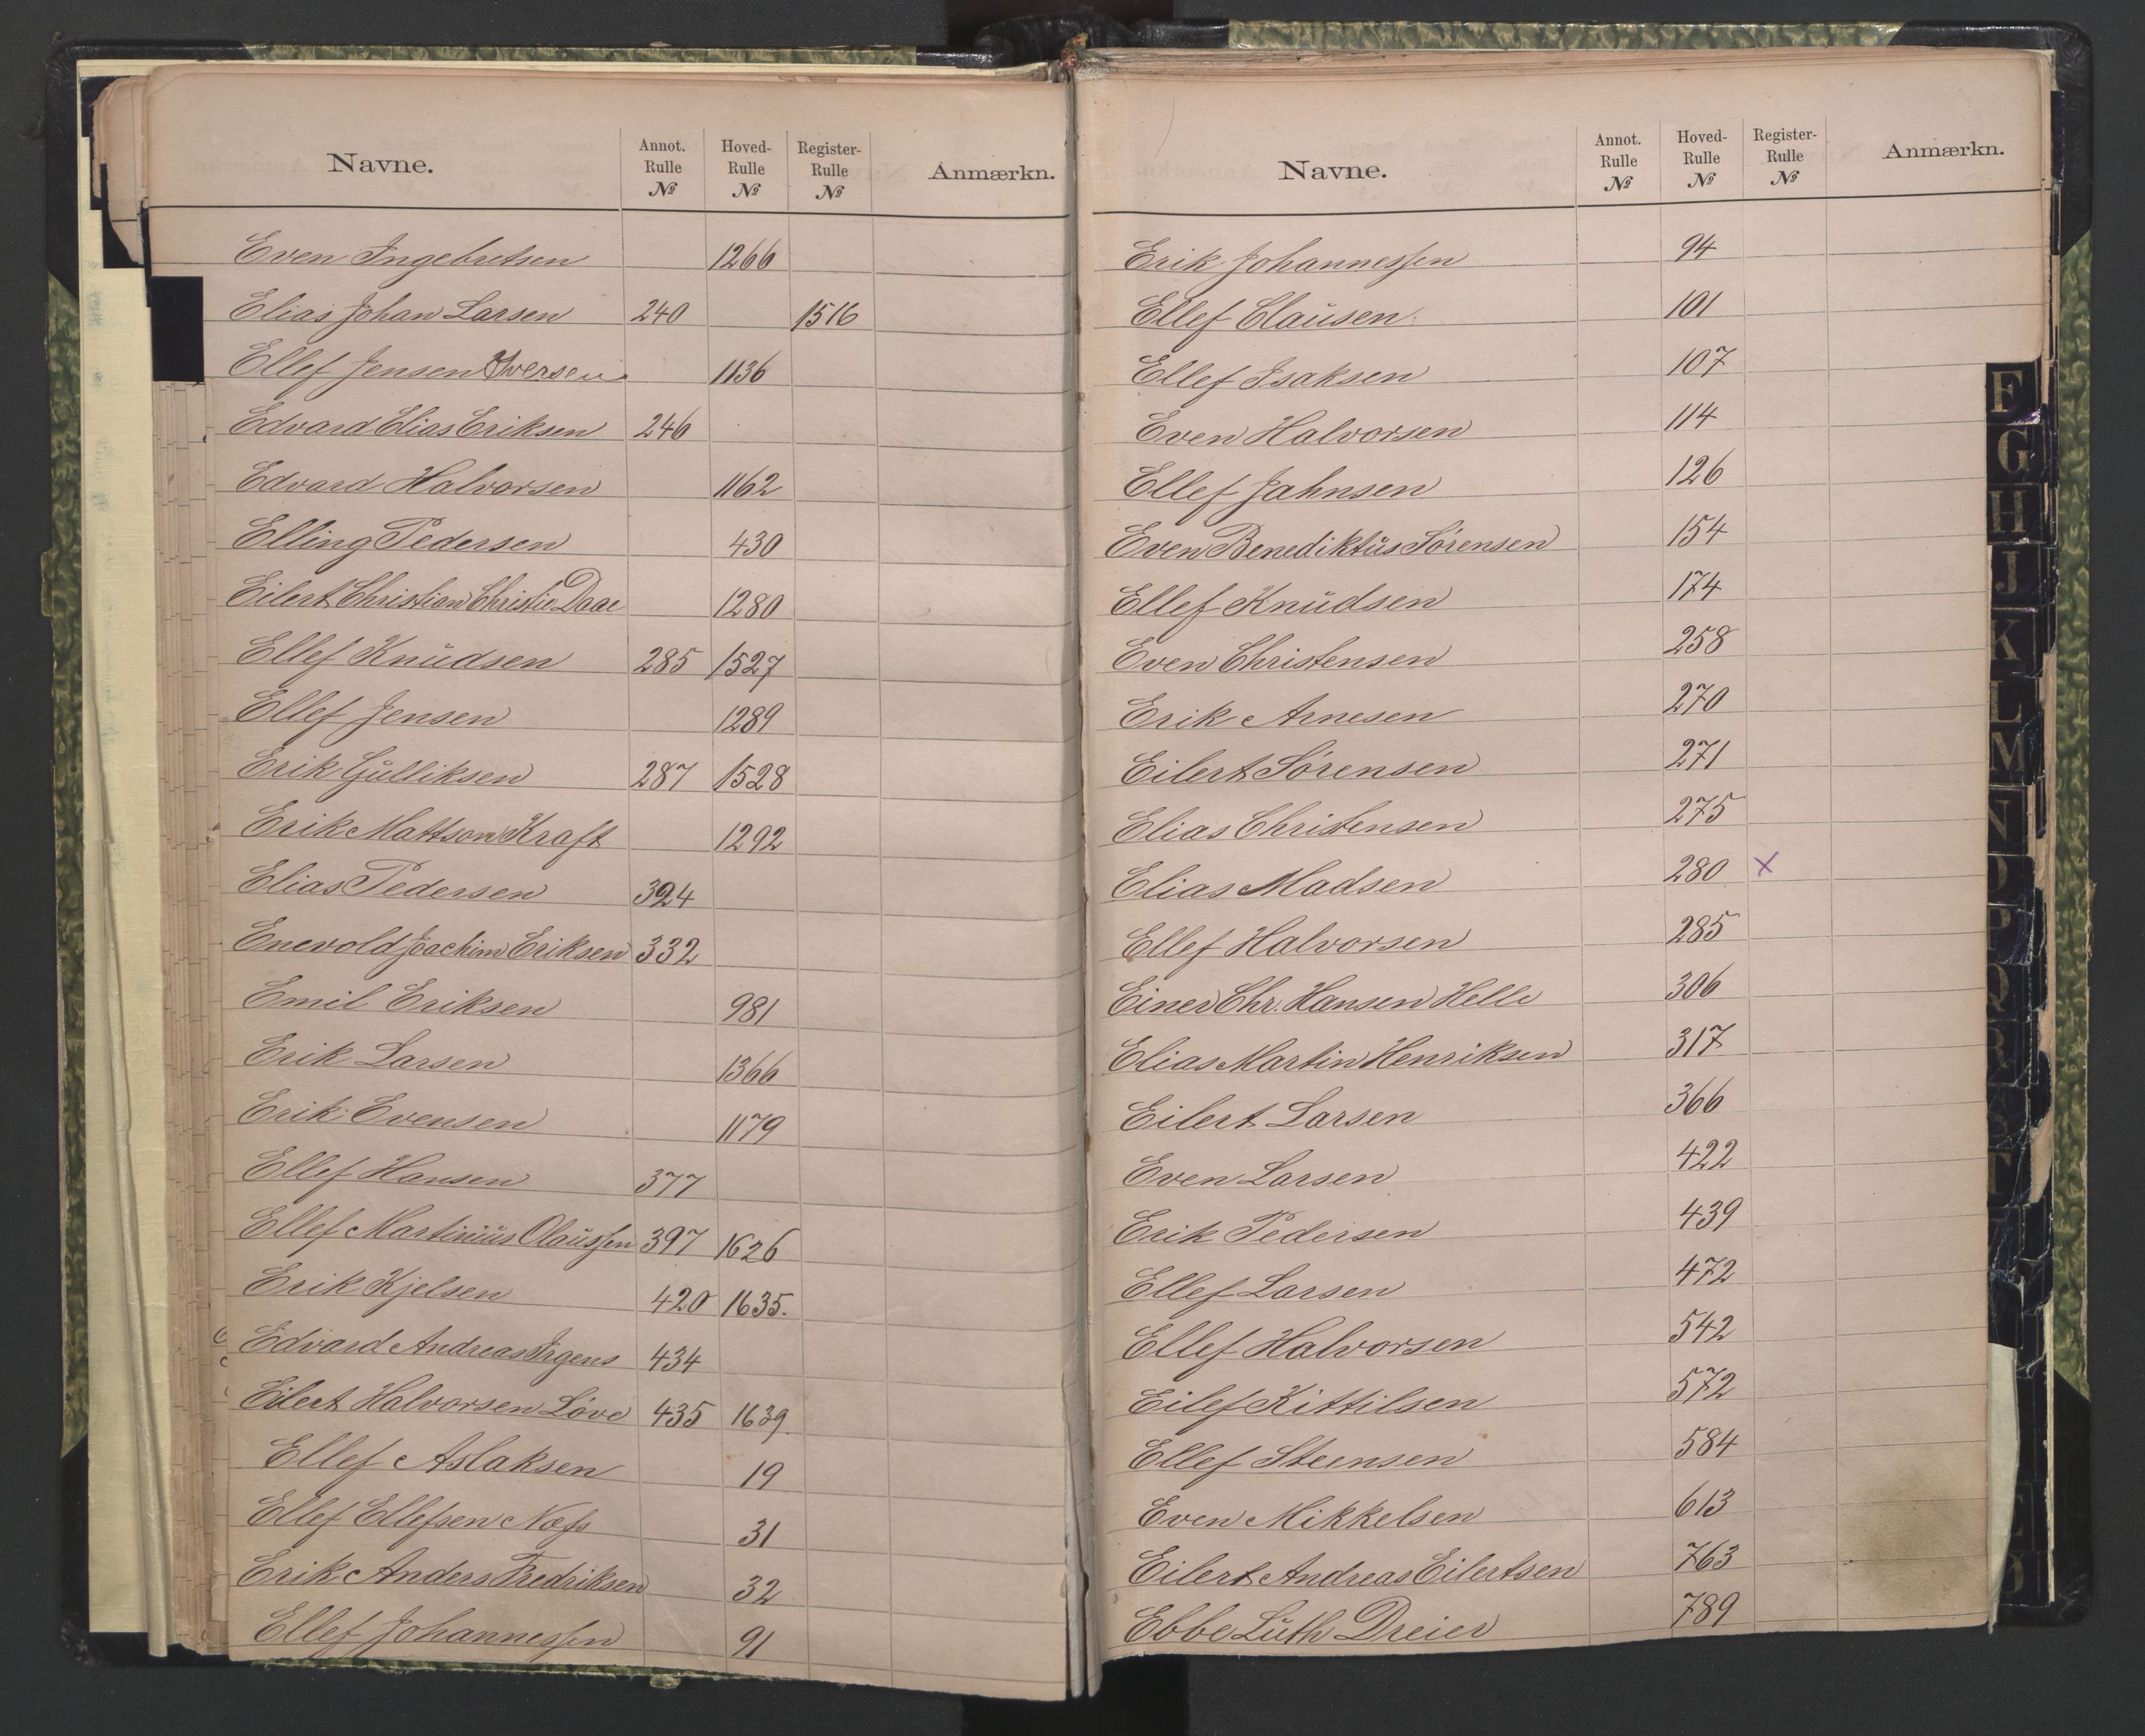 Navne. Annot. Rulle № Hoved- Rulle № Register- Rulle № Anmærkn.
Even Ingebretsen 1266
Elias Johan Larsen 240 1516
Ellef Jensen Thversen 1136
Edvard Elias Eriksen 246
Edvard Halvorsen 1162
Elling Pedersen 430
Eilert Christian Christie Daae 1280
Ellef Knudsen 285 1527
Ellef Jensen 1289
Erik Gulliksen 287 1528
Erik Mattson Kraft 1292
Elias Pedersen 324
Enevold Joachim Eriksen 332
Emil Eriksen 981
Erik Larsen 1366
Erik Evensen 1179
Ellef Hansen 377
Ellef Martinius Olaussen 397 1626
Erik Kjelsen 420 1635.
Edvard Andreas Irgens 434
Eilert Halvorsen Löve 435 1639.
Ellef Aslaksen 19
Ellef Ellefsen Næss 31
Erik Anders Fredriksen 32
Ellef Johannessen 91
Navne. Annot. Rulle № Hoved- Rulle № Register- Rulle № Anmærkn.
Erik Johannessen 94
Ellef Clausen 101
Ellef Isaksen 107
Even Halvorsen 114
Ellef Jahnsen 126
Even Benediktus Sørensen 154
Ellef Knudsen 174
Even Christensen 258
Erik Arnesen 270
Eilert Sørensen 271
Elias Christensen 275
Elias Madsen 280 X
Ellef Halvorsen 285
Einer Chr. Hansen Helle 306
Elias Martin Henriksen 317
Eilert Larsen 366
Even Larsen 422
Erik Pedersen 439
Ellef Larsen 472
Ellef Halvorsen 542
Eilef Kittilsen 572
Ellef Steensen 584
Even Mikkelsen 613
Eilert Andreas Eilertsen 763
Ebbe Luth Dreier 789
F
G
H
J
K
L
M
N
P
Q
R
T